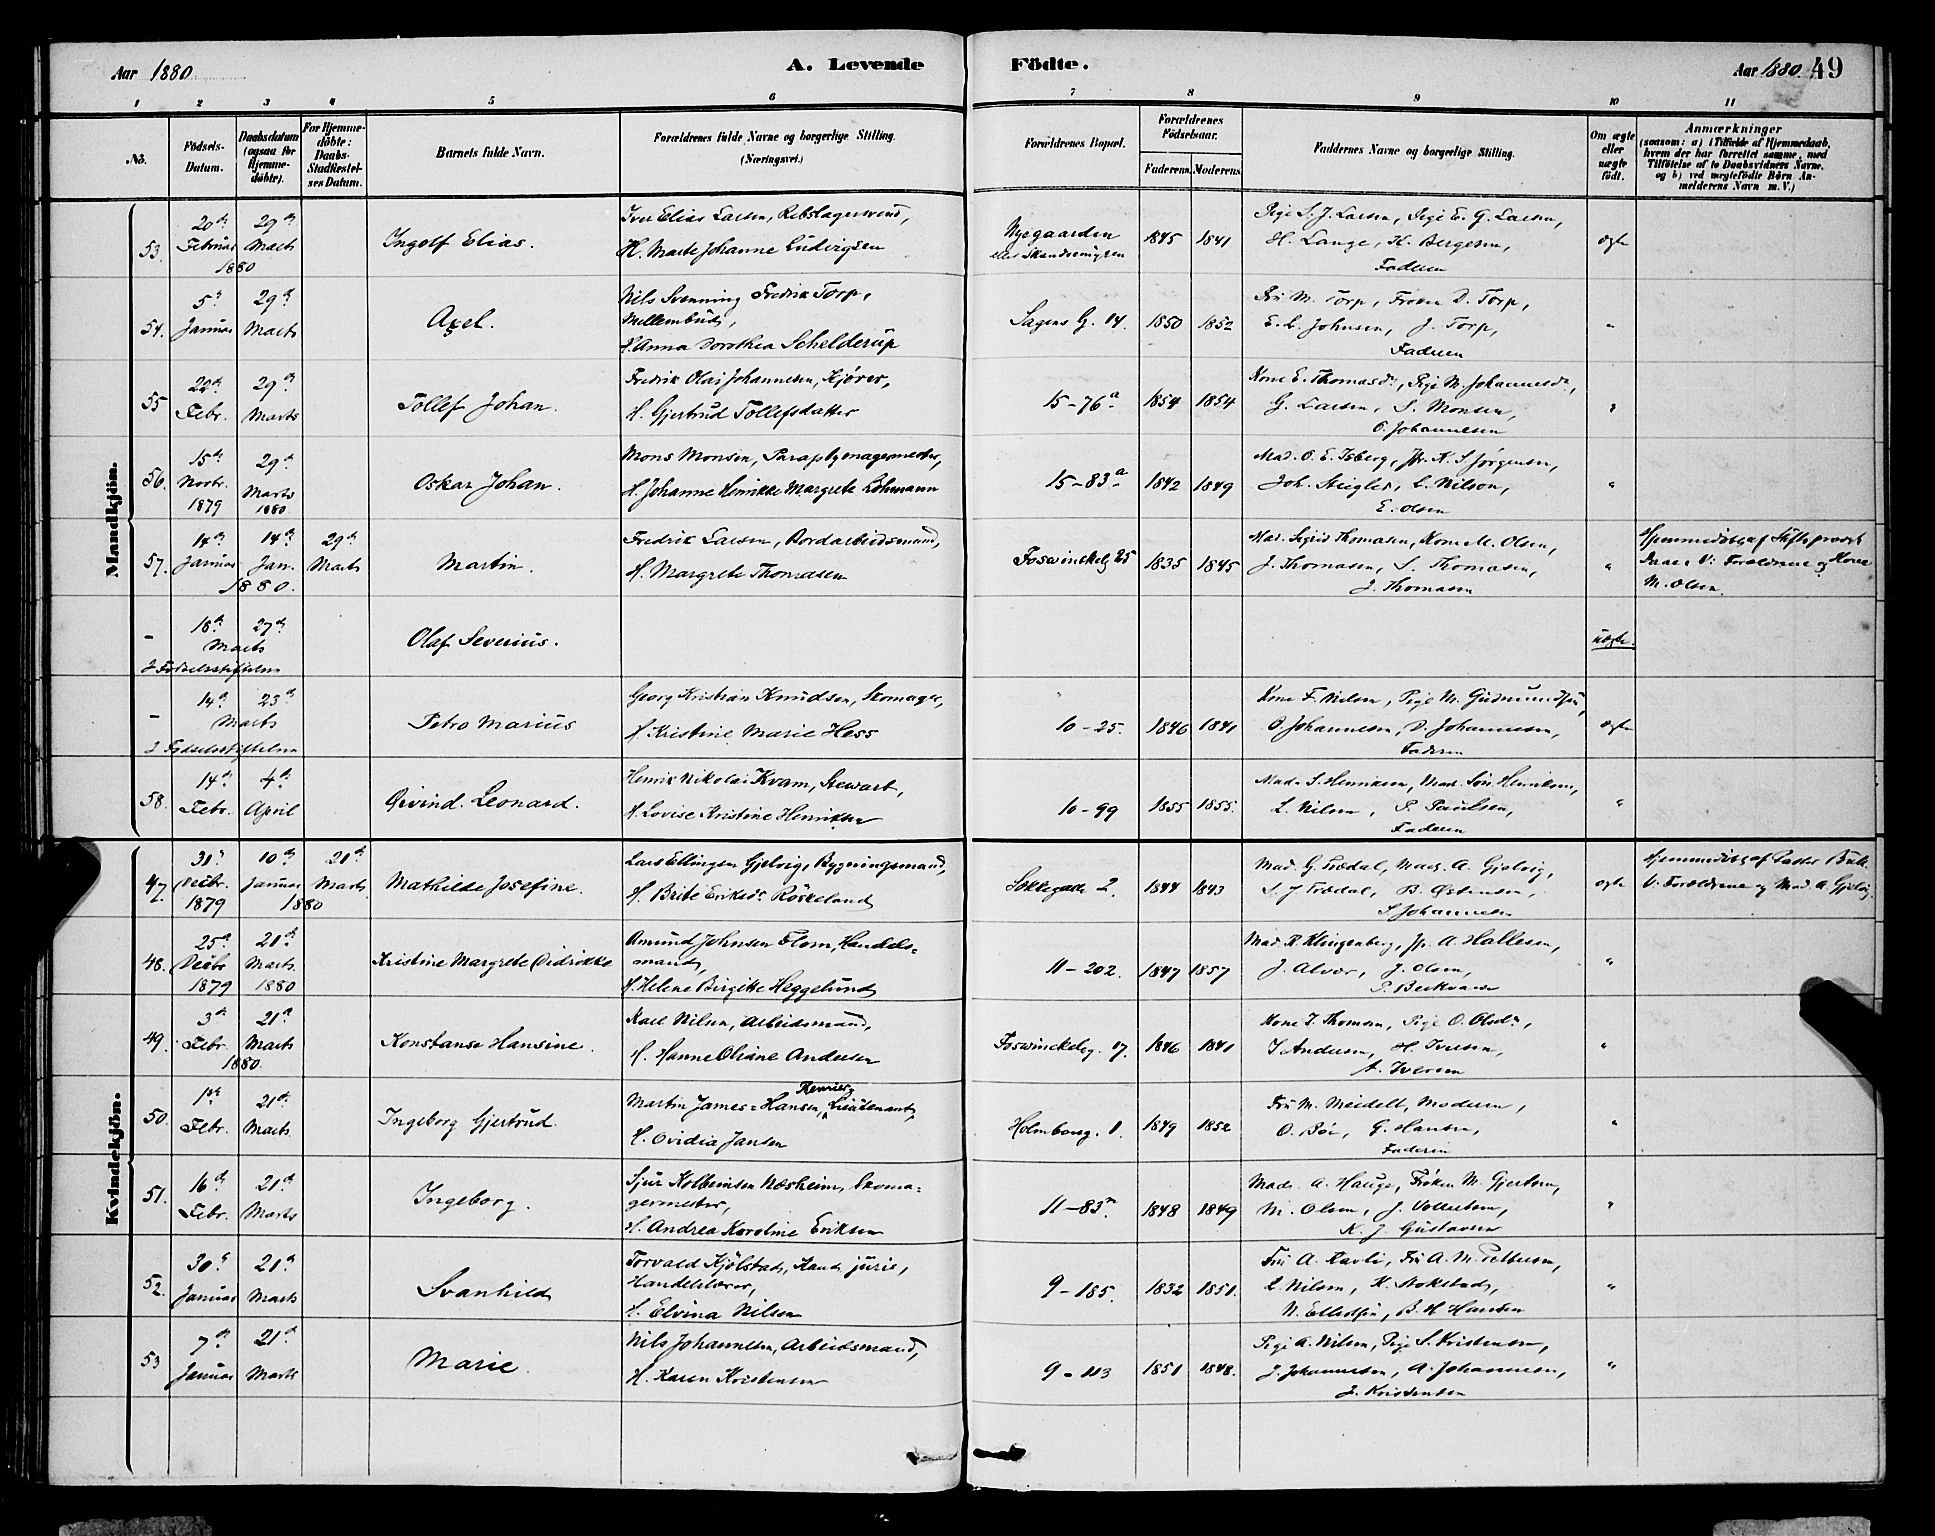 Aar 1880.
A. Levende Födte.
Aar 1880. 49
1 2 3 4 5 6 7 8 9 10 11
No.
Födsels-Datum.
Daabsdatum (ogsaa for Hjemme-döbte).
For Hjemme-döbte: Daabs-Stadfæstel-ses Datum.
Barnets fulde Navn.
Forældrenes fulde Navne og borgerlige Stilling. (Næringsvei.)
Forældrenes Bopæl.
Forældrenes Födselsaar.
Faderens. Moderens.
Faddernes Navne og borgerlige Stilling.
Om ægte eller uægte födt.
Anmærkninger
(saasom: a) i Tilfælde af Hjemmedaab, hvem der har forrettet samme, med Tilföielse af to Daabsvidners Navne, og b) ved uægtefödte Börn Anmelderens Navn m. V.)
Mandkjön.
53. 20de Februar 29de Marts 1880
Ingolf Elias.
Iver Elias Larsen, Rebslagersvend,
H. Marte Johanne Ludvigsen
Nygaarden
1845 1841
Pige S. J. Larsen, Pige E. G. Larsen,
H. Lange, K. Bergesen,
Faderen
ægte
54. 5te Januar 29de Marts
Axel.
Nils Svenning Fredrik Torp,
Mellembud,
H. Anna Dorothea Schelderup
Sagens G. 14. 1850 1852
Fru M. Torp, Frøken D. Torp,
E. L. Johnsen, J. Torp,
Faderen
"
55 22de Febr. 29de Marts
Tollef Johan.
Fredrik Olai Johannesen, Kjører,
H. Gjertrud Tollefsdatter
15-76a 1854 1854
Kone E. Thomasdr, Pige M. Johannesdr,
G. Larsen, S. Monsen,
O. Johannesen
"
56. 15de Novbr. 1879 29de Marts 1880
Oskar Johan.
Mons Monsen, Paraplymagermester,
H. Johanne Henrikke Margrete Lohmann
15-83a 1842 1849
Mad. O. E. Isberg, Jfr. K. S. Jørgensen,
Joh. Steigler, L. Nilson,
E. Olsen
"
57. 14de Januar 14de Jan. 1880. 29de Marts
Martin.
Fredrik Larsen, Bordarbeidsmand,
H. Margrete Thomasen
Foswinckelg 25 1835 1845
Mad. Sigrid Thomasen, Kone M. Olsen,
J. Thomasen, S. Thomasen,
J. Thomasen
"
Hjemmedøbt af Stiftsprovst
V: Forældrene og Kone
M. Olsen.
- 18de 27de Marts
I Fødselsstiftelsen
Olaf Severius.
uægte.
- 14de 23de Marts
I Fødselsstiftelsen
Petro Marius
Georg Kristian Knudsen, Skomager,
H. Kristine Marie Hess
10-25. 1846 1841
Kone F. Nilsen, Pige M. Gudmundsen,
O Johannesen, D. Johannesen,
Faderen
ægte
58. 14de Febr. 4de April
Øivind Leonard.
Henrik Nikolai Kvam, Stewart,
H. Lovise Kristine Henriksen
10-99 1855 1855.
Mad. S. Henriksen, Mad. Henriksen,
L. Nilsen, P. Paulsen,
Faderen
"
Kvindekjön.
47. 31te Decbr. 1879 10de Januar 1880 21de Marts
Mathilde Josefine.
Lars Ellingsen Gjelvig, Bygningsmand,
H. Brite Eriksdr Röskeland
Sokkegade 2. 1844 1843
Mad. G. Frædal, Mad. A. Gjelvig,
S. J. Frædal, B. Østensen,
S Johannesen
ægte
Hjemmedøbt af Pastor Bull.
V: Forældrene og Mad. A. Gjelvig.
48. 25de Decbr 1879 21de Marts 1880
Kristine Margrete Didrikke
Amund Johnsen Flom, Handels=
mand,
H. Helene Birgitte Heggelund
11-202. 1847 1857
Mad. R. Klingenberg, Jfr. A. Hallesen,
J. Alver, J. Olsen,
"
49. 3de Febr. 21de Marts 1880.
Konstanse Hansine.
Karl Nilsen, Arbeidsmand,
H. Hanne Oliane Andersen
Foswinckelg. 17. 1846 1841
Kone I. Thomsen, Pige O. Olsdr,
I Andersen, H. Iversen,
A. Iversen
"
50. 1ste Febr. 21de Marts
Ingeborg Gjertrud.
Martin James=Hansen, Premier Lieutenant,
H. Ovidia Jansen
Holmboeg. 1. 1849 1852
Fru M. Meidell, Moderen,
O. Böe, G. Hansen,
Faderen
"
51. 16de Febr. 21de Marts
Ingeborg.
Sjur Kolbeinsen Næsheim, Skoma=
germester,
H. Andrea Karoline Eriksen
11-83a. 1848 1849
Mad. A. Hauge, Frøken M. Gjertsen,
M. Olsen, J. Vollertsen,
K. J. Gustavsen
"
52. 30te Januar 21de Marts
Svanhild
Torvald Kjölstad, Kand. juris,
Handelslærer,
H. Elvina Nilsen
9-185. 1832 1851.
Fru A. Ravli, Fru A. M. Pettersen,
L. Nilsen, K. Stokstad,
N. Ellertsen, B. H. Hansen
"
53 7de Januar 21de Marts
Marie.
Nils Johannesen, Arbeidsmand,
H. Karen Kristensen
9-113 1851 1848.
Pige A. Nilsen, Pige S. Kristensen,
J. Johannesen, A. Johannesen,
J. Kristensen
"